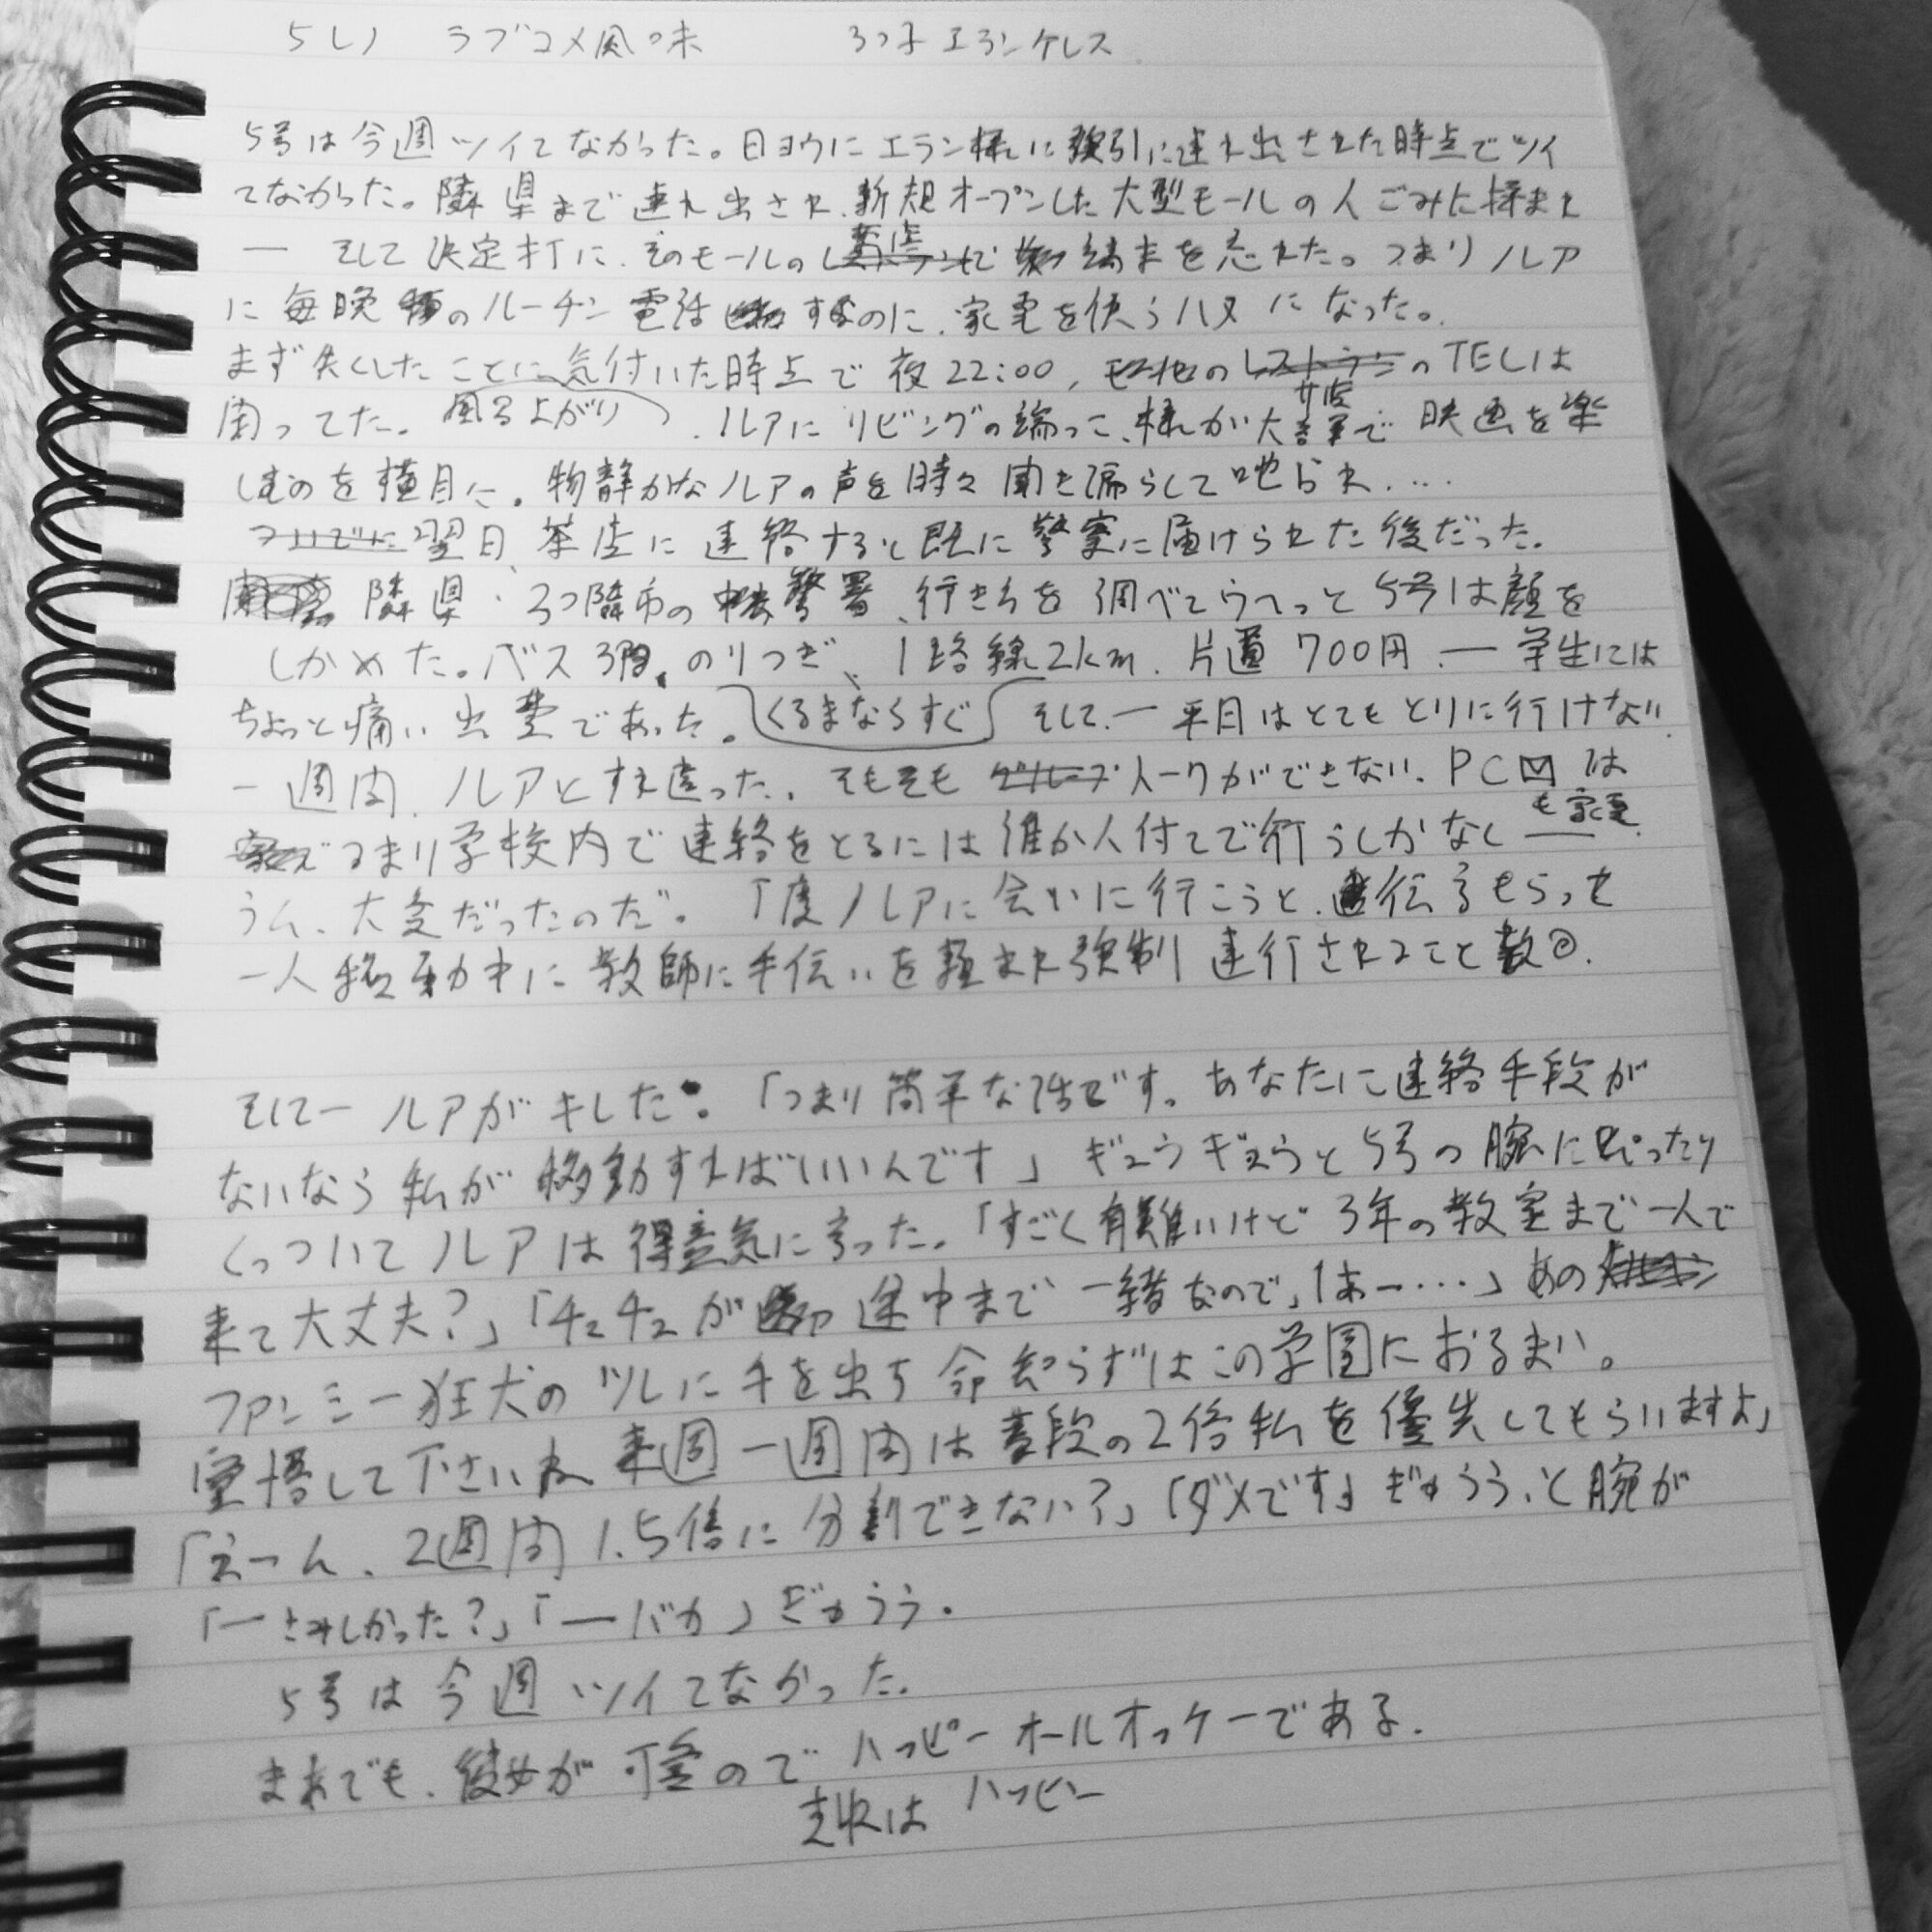 5しノ ラブコメ風味 3つ子エランケレス
5号は今週ツイてなかった。日ヨウにエラン様に強引に連れ出された時点でツイ
てなかった。隣県まで連れ出され、新規オープンした大型モールの人ごみに揉まれ
― そして決定打に、そのモールの茶店で 端末を忘れた。つまりノレア
に毎晩のルーチン電話するのに、家電を使うハメになった。
まず失くしたことに気付いた時点で夜22:00, の茶店のTELは
閉ってた。風呂上がり、ノレアにリビングの端っこ、様が大音量で映画を楽
しむのを横目に。物静かなノレアの声を時々聞き漏らして叱られ、...
翌日、茶店に連絡すると既に警察に届けられた後だった。
隣県・3つ隣市の中央警署、行き方を調べてウヘっと5号は顔を
しかめた。バス3回、のりつぎ、1路線2km、片道700円、― 学生には
ちょっと痛い出費であった。くるまならすぐ そして、― 平日はとてもとりに行けない
一週間、ノレアとすれ違った、そもそも トークができない、PC は
も家電
つまり学校内で連絡をとるには誰か人付てで行うしかなし ―
うん、大変だったのだ。 1度ノレアに会いに行こうと、伝えもらって
一人移動中に教師に手伝いを頼まれ強制連行されること数回。
そして― ノレアがキレた。「つまり簡単な話です。あなたに連絡手段が
ないなら私が移動すればいいんです」ギュウギュウと5号の腕にぴったり
くっついてノレアは得意気に言った。「すごく有難いけど3年の教室まで一人で
来て大丈夫?」「チュチュが 途中まで一緒なので」「あー・・・・」あの
ファンシー狂犬のツレに手を出す命知らずはこの学園におるまい。
覚悟して下さいね 来週一週間は普段の2倍私を優先してもらいますよ」
「えーん、2週間1.5倍に分割できない?」「ダメです」ぎゅうう、と腕が
「―さみしかった?」「―バカ」ぎゅうう。
5号は今週ツイてなかった。
まあでも、彼女が可愛ので ハッピーオールオッケーである。
支収は ハッピー